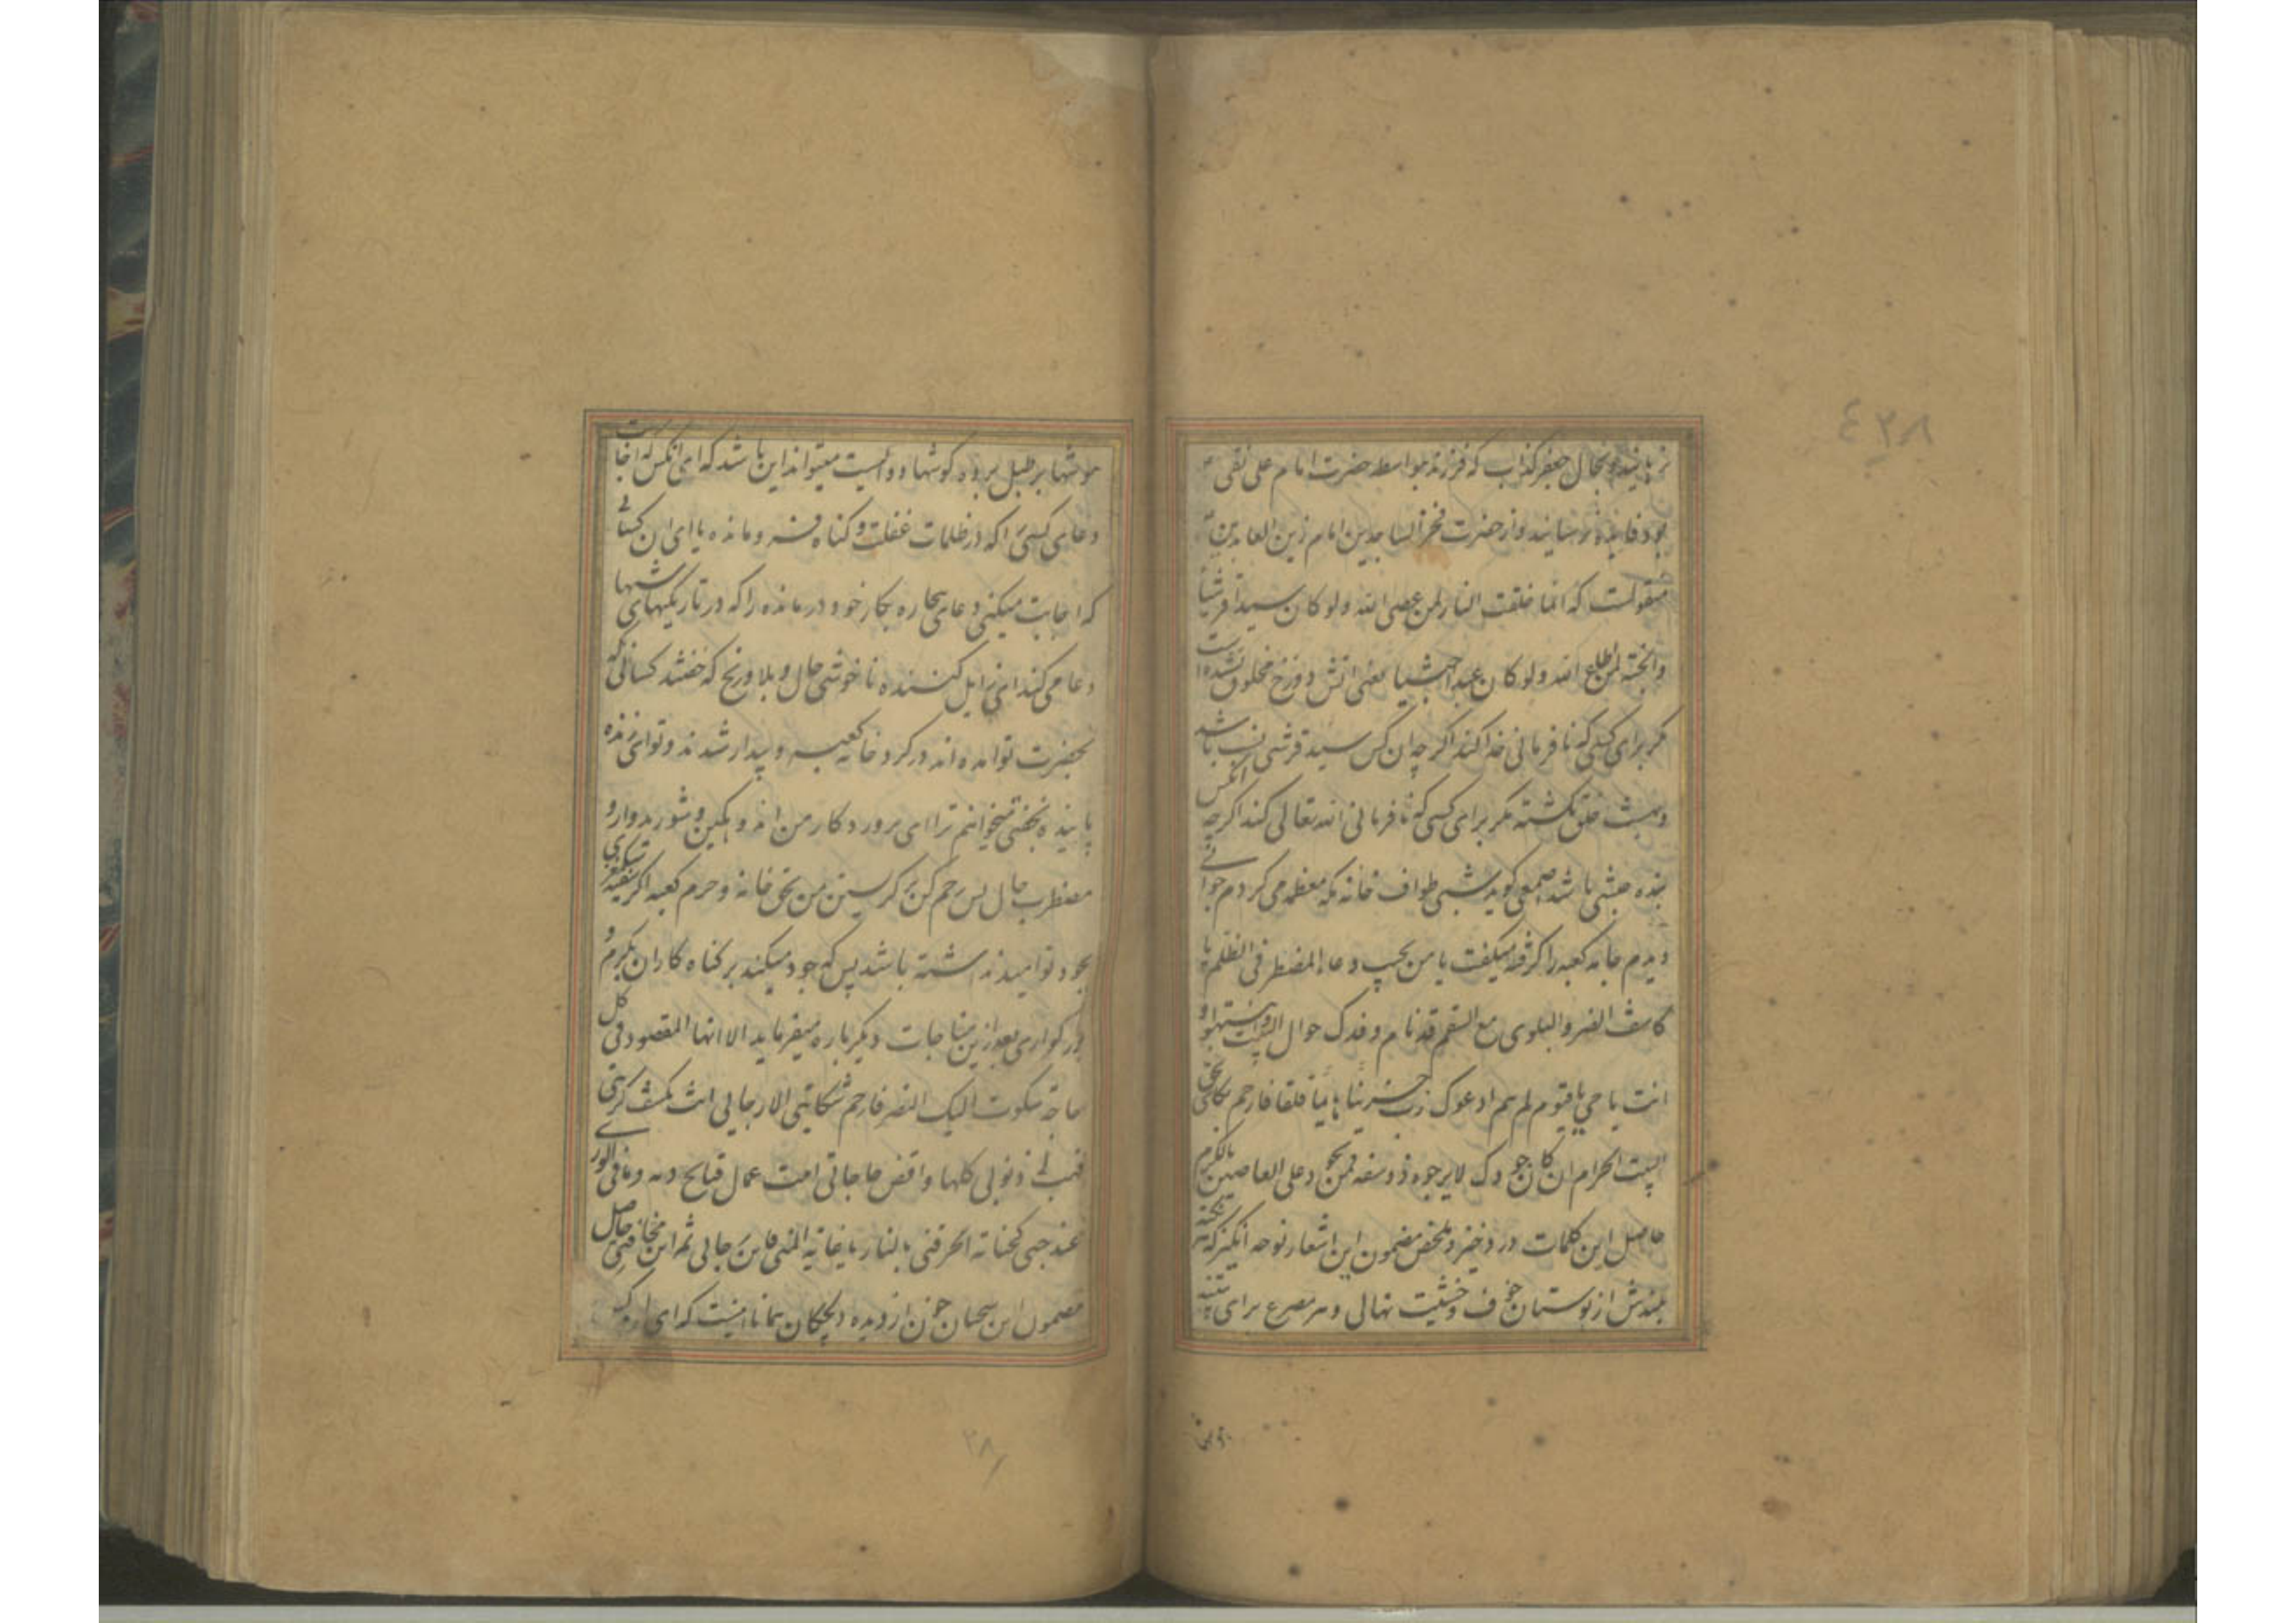 نرهانید و بحال جعفر کذاب که فرزند بواسطه حضرت امام علی نقی
بود فایده نرسانید و از حضرت فخر الساجدین امام زین العابدین
منقولست که انما خلقت النار لمن عصی الله ولو کان سیدا قرشیا
والجنة لمن اطاع الله ولو کان عبدا حبشیا یعنی اتش دوزخ مخلوق نشده است
مکر برای کسی که نافرمانی خدا کند اکرچه ان کس سید قرشی نسب باشد
وبهشت خلق نکشته مکر برای کسی که نافرمانی الله تعالی کند اکرچه انکس
بنده حبشی باشد اصمعی کوید شبی طواف خانه مکه معظمه می کردم جوانی
دیدم جامه کعبه را کرفته میکفت یا من یجیب دعاء المضطر فی الظلم یا
کاشف الضر والبلوی مع السقم قد نام وفدک حول البیت وانتبهوا و
انت یا حی یا قیوم لم تنم ادعوک رب حزینا هایما قلقا فارحم بکائی بحق
البیت الحرام ان کان جودک لا یرجوه ذو سفه فمن یجود علی العاصین بالکرم
حاصل این کلمات درد خیز و ملخص مضمون این اشعار نوحه انکیز که هر نکته
بلندش از بوستان خوف و خشیت نهالی و هر مصرع برای
۴۳۸
موشها بر طبل برده کوشها دوالیست میتواند این باشد که ای انکس که اجابت
دعای کسی را که در ظلمات غفلت و کناه فرومانده یا ای ان کسانی
که اجابت میکنی دعای بیچاره بکار خود درمانده را که در تاریکیهای شبها
دعا می کند ای زایل کننده ناخوشی حال و بلا و رنج که خفتند کسانی که
بحضرت تو امده اند در کرد خانه کعبه و بیدار شدند و تو ای زنده
پاینده نخفتی میخوانم ترا ای پروردکار من اندوهکین و شوریده وار و
مضطرب حال پس رحم کن بر کریستن من بحق خانه و حرم کعبه اکر
بجود تو امید نداشته باشد پس که جود میکند بر کناه کاران بکرم و
بزرکواری بعد ازین مناجات دیکر باره میفرماید الا ایها المقصود فی کل
حاجة شکوت الیک الضر فارحم شکایتی الا یا رجایی انت تکشف کربتی
فهب لی ذنوبی کلها واقض حاجاتی اتیت باعمال قباح ردیة وما فی الوری
عبد جنی کجنایتی اتحرقنی بالنار یا غایة المنی فاین رجایی ثم این مخافتی حاصل
مضمون این سخنان خون از دیده دلچکان همانا اینست که ای
۳۸